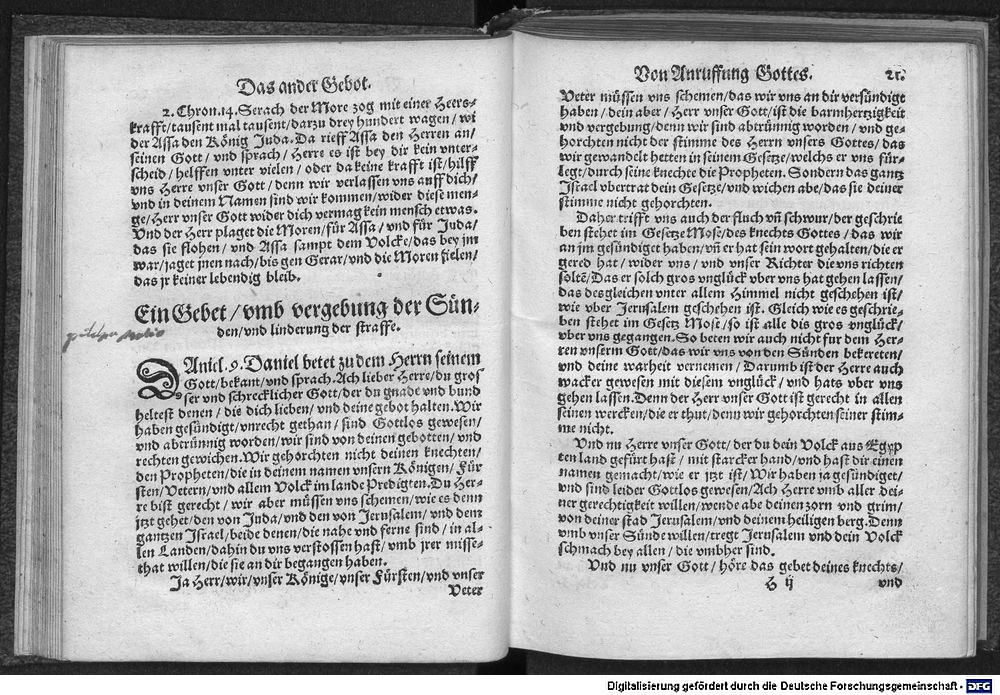 Das ander Gebot.
2. Chron. 14. Serach der More zog mit einer Heers-
krafft/tausent mal tausent/darzu drey hundert wagen/wi
der Assa den König Juda. Da rieff Assa den Herren an/
seinen Gott/vnd sprach/Herre es ist bey dir kein vnter-
scheid/helffen vnter vielen/oder da keine krafft ist/hilff
vns Herre vnser Gott/denn wir verlassen vns auff dich/
vnd in deinem Namen sind wir kommen/wider diese men-
ge/Herr vnser Gott wider dich vermag kein mensch etwas.
Vnd der Herr plaget die Moren/für Assa/vnd für Juda/
das sie flohen/vnd Assa sampt dem Volcke/das bey jm
war/jaget jnen nach/bis gen Gerar/vnd die Moren fielen/
das jr keiner lebendig bleib.
Ein Gebet/vmb vergebung der Sün-
den/vnd linderung der straffe.
DAniel. 9. Daniel betet zu dem Herrn seinem
Gott/bekant/vnd sprach. Ach lieber Herre/du gros
ser vnd schrecklicher Gott/der du gnade vnd bund
heltest denen/die dich lieben/vnd deine gebot halten. Wir
haben gesündigt/vnrecht gethan/sind Gottlos gewesen/
vnd abtrünnig worden/wir sind von deinen gebotten/vnd
rechten gewichen. Wir gehorchten nicht deinen knechten/
den Propheten/die in deinem namen vnsern Königen/Für
sten/Vetern/vnd allem Volck im lande Predigten. Du Her-
re bist gerecht/wir aber müssen vns schemen/wie es denn
jtzt gehet/den von Juda/vnd den von Jerusalem/vnd dem
gantzen Israel/beide denen/die nahe vnd ferne sind/in al-
len Landen/dahin du vns verstossen hast/vmb jrer misse-
that willen/die sie an dir begangen haben.
Ja Herr/wir/vnser Könige/vnser Fürsten/vnd vnser
Veter
Von Anruffung Gottes. 21.
Veter müssen vns schemen/das wir vns an dir versündigt
haben/dein aber/Herr vnser Gott/ist die barmhertzigkeit
vnd vergebung/denn wir sind abtrünnig worden/vnd ge-
horchten nicht der stimme des Herrn vnsers Gottes/das
wir gewandelt hetten in seinem Gesetze/welchs er vns für-
legt/durch seine knechte die Propheten. Sondern das gantz
Israel vbertrat dein Gesetze/vnd wichen abe/das sie deiner
stimme nicht gehorchten.
Daher trifft vns auch der fluch vñ schwur/der geschrie
ben stehet im Gesetze Mose/des knechts Gottes/das wir
an jm gesündiget haben/vñ er hat sein wort gehalten/die er
gered hat/wider vns/vnd vnser Richter die vns richten
soltē/Das er solch gros vnglück vber vns hat gehen lassen/
das desgleichen vnter allem Himmel nicht geschehen ist/
wie vber Jerusalem geschehen ist. Gleich wie es geschrie-
ben stehet im Gesetz Mose/so ist alle dis gros vnglück/
vber vns gegangen. So beten wir auch nicht fur dem Her-
ren vnserm Gott/das wir vns von den Sünden bekereten/
vnd deine warheit vernemen/Darumb ist der Herre auch
wacker gewesen mit diesem vnglück/vnd hats vber vns
gehen lassen. Denn der Herr vnser Gott ist gerecht in allen
seinen wercken/die er thut/denn wir gehorchten seiner stim-
me nicht.
Vnd nu Herre vnser Gott/der du dein Volck aus Egyp
ten land gefürt hast/mit starcker hand/vnd hast dir einen
namen gemacht/wie er jtzt ist/Wir haben ja gesündiget/
vnd sind leider Gottlos gewesen/Ach Herre vmb aller dei-
ner gerechtigkeit willen/wende abe deinen zorn vnd grim/
von deiner stad Jerusalem/vnd deinem heiligen berg. Denn
vmb vnser Sünde willen/tregt Jerusalem vnd dein Volck
schmach bey allen/die vmbher sind.
Vnd nu vnser Gott/höre das gebet deines knechts/
H ij vnd
Digitalisierung gefördert durch die Deutsche Forschungsgemeinschaft - DFG